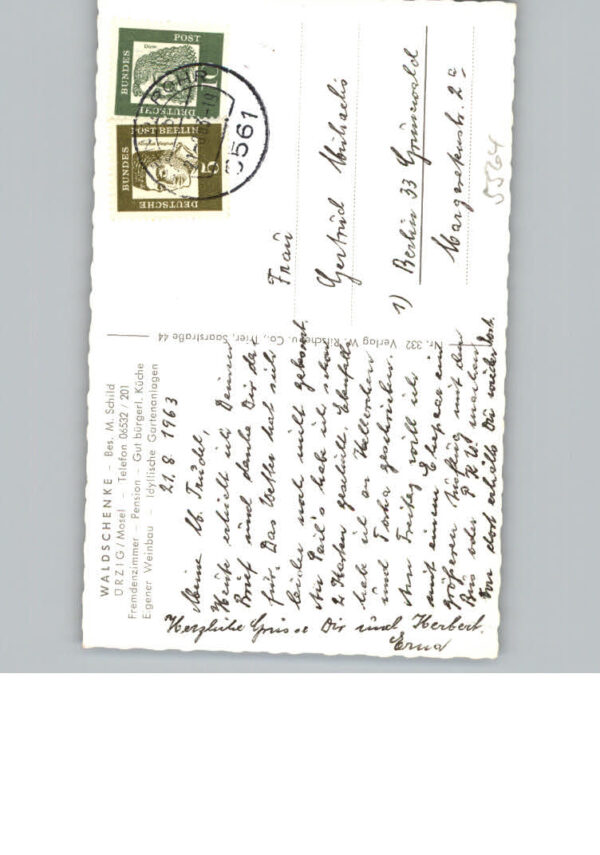 WALDSCHENKE – Bes. M. Schild
ÜRZIG/Mosel – Telefon 06532/201
Fremdenzimmer – Pension – Gut bürgerl. Küche
Eigener Weinbau – Idyllische Gartenanlagen
21.8.1963
Meine lb. Trudel,
Heute erhielt ich Deinen
Brief und danke Dir da-
für. Das Wetter hat sich
leider noch nicht gebessert.
An Geil's habe ich schon
2 Karten geschickt. Ebenfalls
habe ich an
und geschrieben.
Am Freitag will ich
mit einem Ehepaar ein
größeren Ausflug mit dem
Bus oder P.K.W. machen
Von dort erhälts Du wieder Post.
Herzliche Grüsse Dir und Herbert.
Erna
Nr. 332 Verlag W. Ritsche u. Co., Trier, Saarstraße 44
DEUTSCHE
BUNDES
POST
Dürer
10
DEUTSCHE
BUNDES
POST BERLIN
5
5561
Frau
Gertrud Michaelis
1) Berlin 33 Grunewald
Margaretenstr. 2a
5564